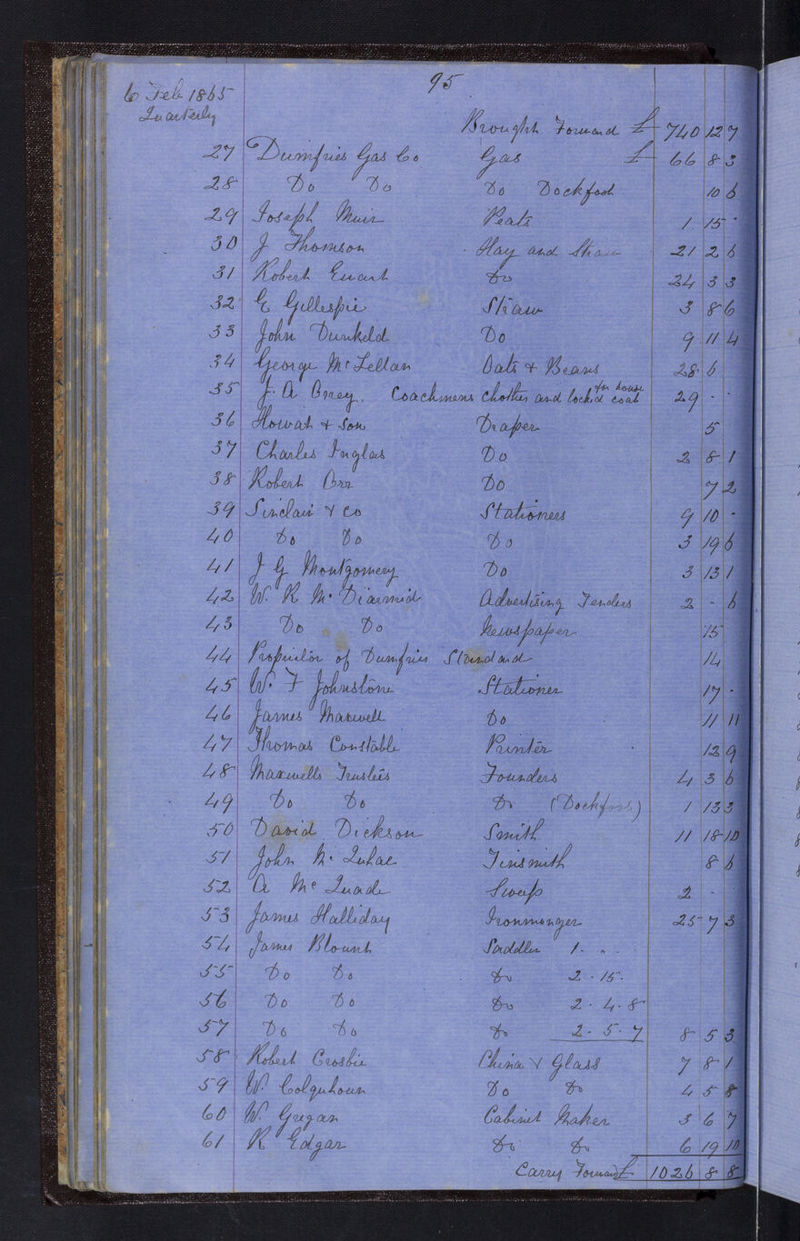 95
6 Feb 1865
Quarterly
Brought Forward £ 740 12 7
27 Dumfries Gas Co Gas £ 66 8 3
28 Do Do Do Dockfoot 10 6
29 Joseph Muir Peats 1 15 -
30 J Thomson Hay and Straw 21 2 6
31 Robert Ewart Do 24 3 3
32 G Gillespie Straw 3 8 6
33 John Dunkeld Do 9 11 4
34 George McLellan Oats & Beans 28 6
35 J. A. Coachmens clothes and coal for house 29 - -
36 Howat & Son Draper 5
37 Charles Inglas Do 2 8 1
38 Robert Orr Do 7 2
39 Sinclair & Co Stationers 9 10 -
40 Do Do Do 3 19 6
41 J G Montgomery Do 3 13 1
42 W. R McDiarmid Advertising Tenders 2 - 6
43 Do Do Newspaper 15
44 Proprietor of Dumfries Standard 14
45 W. F Johnstone Stationer 17 -
46 James Maxwell Do 11 11
47 Thomas Constable Printer 12 9
48 Maxwells Trustees Founders 4 3 6
49 Do Do Do (Dockfoot) 1 13 3
50 David Dickson Smith 11 18 10
51 John Tinsmith 8 6
52 A Mc Quade Sweep 2 -
53 James Halliday Ironmonger 25 7 3
54 James Blount Saddler 1 . " .
55 Do Do Do 2 . 15 .
56 Do Do Do 2 . 4 . 8
57 Do Do Do 2 . 5 . 7 8 5 3
58 Robert Crosbie China & Glass 7 8 1
59 W Colquhoun Do Do 4 5 8
60 W. Gregan Cabinet Maker 3 6 7
61 R Edgar Do Do 6 19 10
Carry Forward £ 1026 8 8